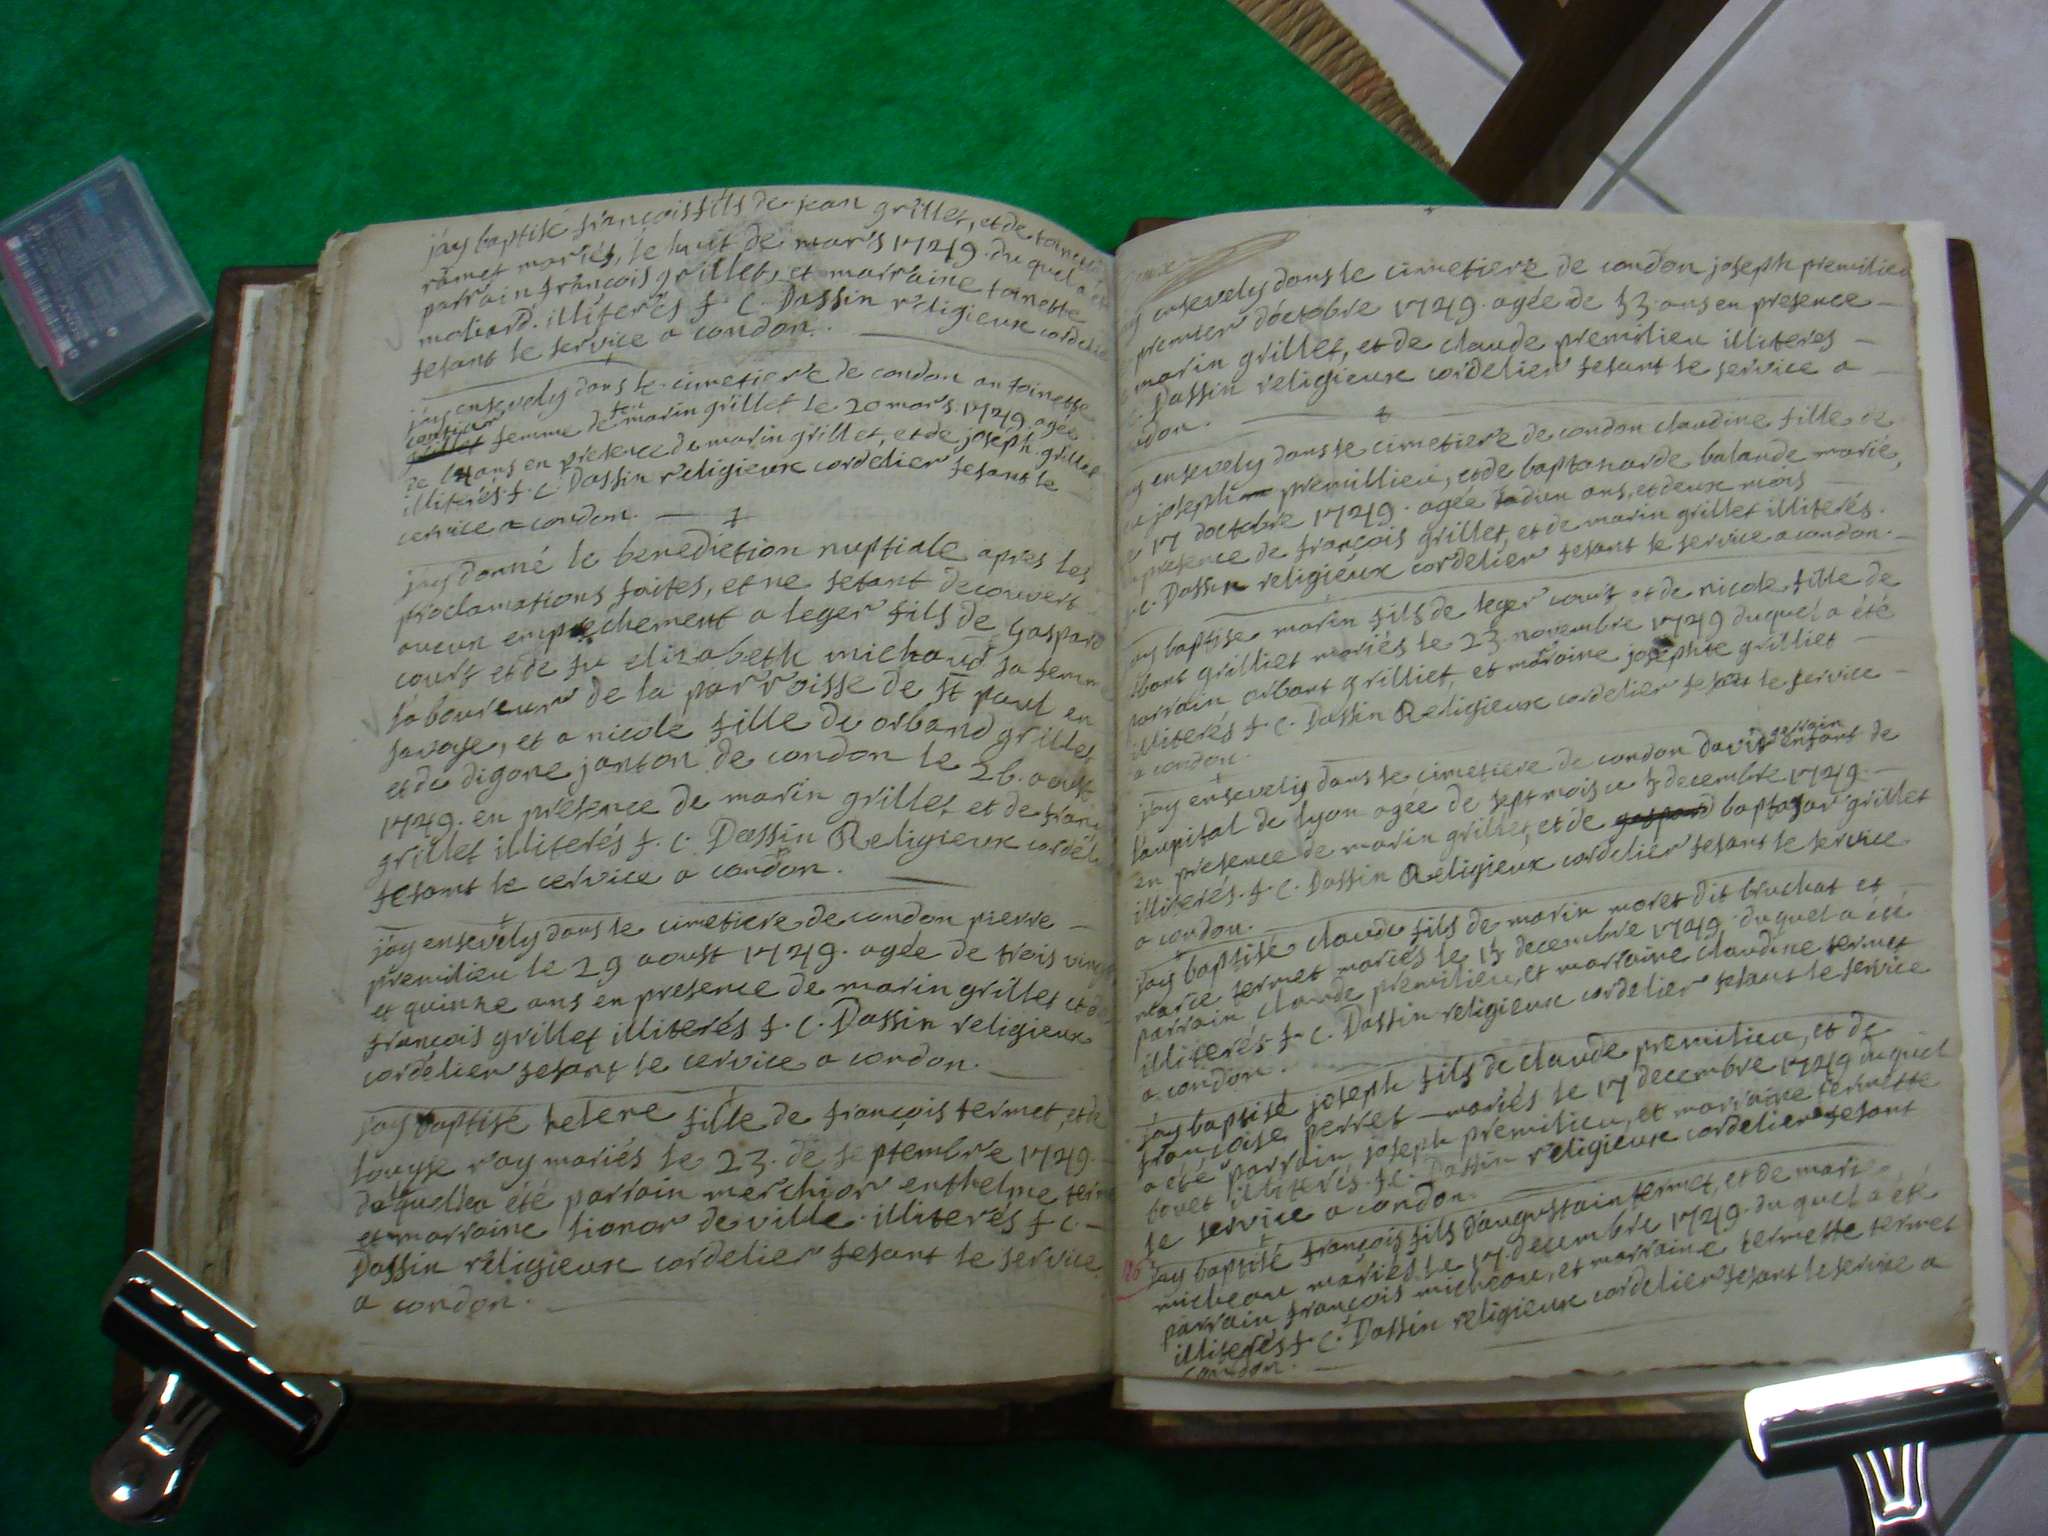 jay baptisé françois fils de jean grillet, et de toinette
ramet mariés, le huit de mars 1749. du quel a été
parrain françois grillet, et marraine toinette
moliard. illiterés f. C. Dassin religieux cordelier
fesant le service a condon.
jay ensevely dans le cimetiere de condon antoinette
grillet femme de feu marin grillet le 20 mars 1749. agée
de ans en presence de marin grillet, et de joseph grillet
illiterés. f. C. Dassin religieux cordelier fesant le
cervice a condon.
jay donné le benediction nuptiale apres les
proclamations faites, et ne setant decouvert
aucun empechement a leger fils de gaspard
court et de fu elizabeth michaud sa femme
laboureur de la parroisse de st paul en
savoye, et a nicole fille de orband grillet
et de digone janton de condon le 26. aoust
1749. en presence de marin grillet et de fran
grillet illiterés f. C. Dassin Religieux cordel
fesant le cervice a condon.
jay ensevely dans le cimetiere de condon pierre
premilieu le 29 aoust 1749. agée de trois vingt
et quinze ans en presence de marin grillet et de
françois grillet illiterés f. C. Dassin religieux
cordelier fesant le cervice a condon.
jay baptisé helene fille de françois termet, et de
louyse ray mariés le 23. de septembre 1749.
de laquella a été parrain merchior enthelme
et marraine lionor deville. illiterés f. C.
Dassin religieux cordelier fesant le service
a condon.
ensevely dans le cimetiere de condon joseph premilieu
premier d'octobre 1749. agée de 53 ans en presence
marin grillet, et de claude premilieu illiteres
Dassin religieux cordelier fesant le service a
ndon.
ensevely dans le cimetiere de condon claudine fille de
joseph premillieu, et de balande marié,
17 doctobre 1749. agée dun ans, et deux mois
presence de françois grillet, et de marin grillet illiterés.
C. Dassin religieux cordelier fesant le service a condon.
baptisé marin fils de leger court et de nicole fille de
grilliet mariés le 23. novembre 1749 duquel a été
parrain orbant grilliet, et maraine josephte grilliet
illiterés f. C. Dassin Religieux cordelier fesant le service
a condon.
jay ensevely dans le cimetiere de condon david enfant de
laupital de lyon agée de sept mois decembre 1749.
en presence de marin grillet, et de gaspard baptasar grillet
illiterés. f. C. Dassin Religieux cordelier fesant le service
a condon.
jay baptisé claude fils de marin moret dit bruchat et
termet mariés le 15 decembre 1749. du quel a été
parrain claude premilieu, et marraine claudine termet
illiterés. f. C. Dassin religieux cordelier fesant le service
a condon.
jay baptisé joseph fils de claude premilieu, et de
françoise perret mariés le 17 decembre 1749 duquel
a été parrain joseph premilieu, et marraine
bovet illiterés. f. C. Dassin religieux cordelier fesant
le service a condon.
jay baptisé françois fils d'augustain termet, et de mari
micheau mariés le 17. decembre 1749. du quel a été
parrain françois micheau, et marraine termette termet
illiterés f. C. Dassin religieux cordelier fesant le service a
condon.